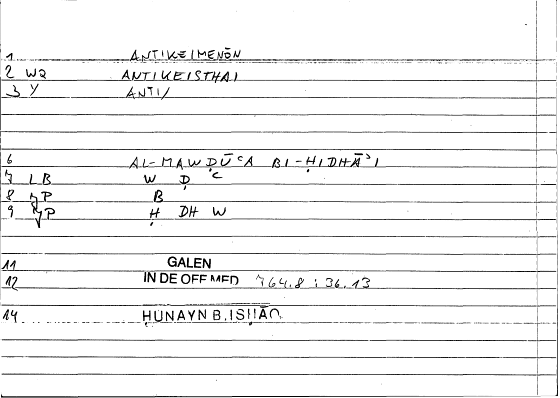 1 ANTIKEIMENŌN
2 WQ ANTIKEISTHAI
3 Y ANTI/
6 AL-MAWḌŪʿA BI-ḤIDHĀʾI
7 LB W Ḍ ʿ
8 7P B
9 7P Ḥ DH W
11 GALEN
12 IN DE OFF MED 764.8 : 36.13
14 ḤUNAYN B. ISḤĀQ